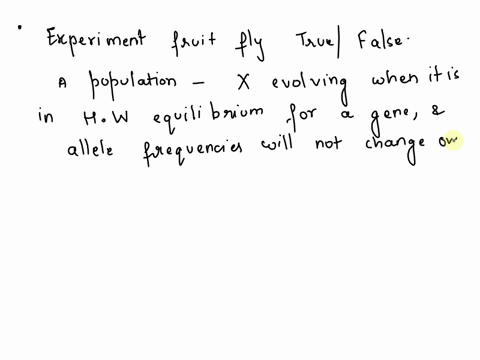 Experiment fruit fly True/False.
A population - X evolving when it is
in H.W equilibrium for a gene, &
allele frequencies will not change ov